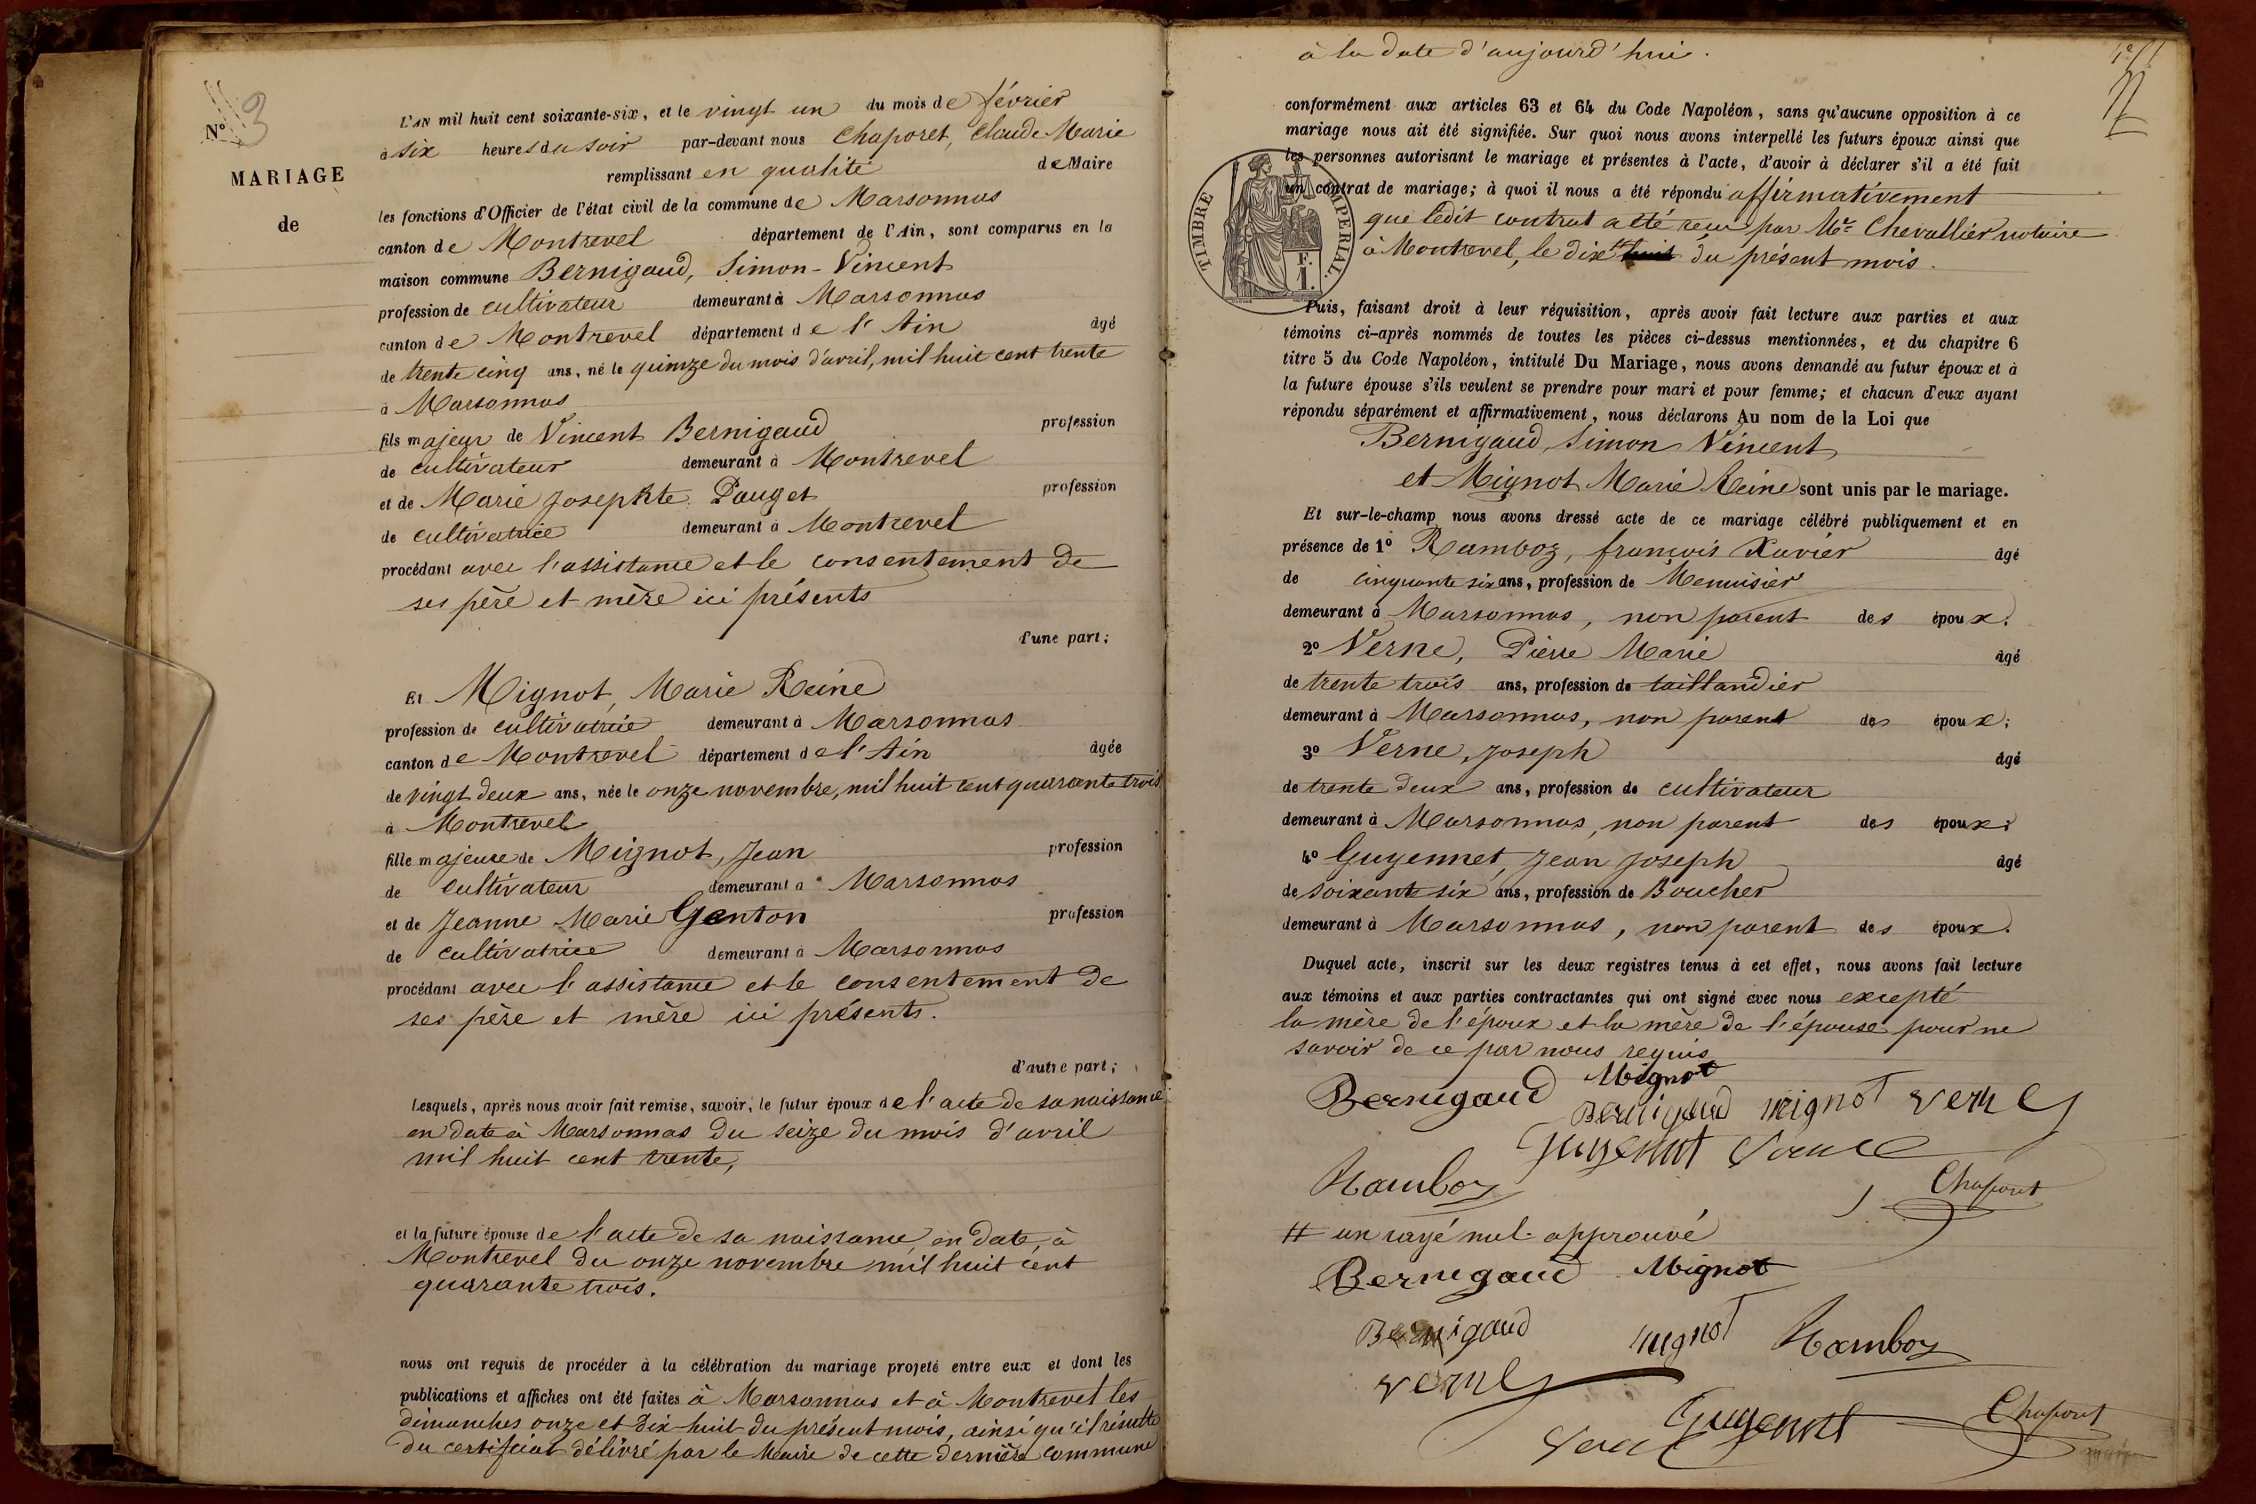 N° 3
MARIAGE
de
L'AN mil huit cent soixante-six, et le vingt un du mois de février
à six heures du soir par-devant nous Chaporet, Claude Marie
remplissant en qualité de Maire
les fonctions d'Officier de l'état civil de la commune de Marsonnas
canton de Montrevel département de l'Ain, sont comparus en la
maison commune Bernigaud, Simon-Vincent
profession de cultivateur demeurant à Marsonnas
canton de Montrevel département de l'Ain âgé
de trente cinq ans, né le quinze du mois d'avril, mil huit cent trente
à Marsonnas
fils majeur de Vincent Bernigaud profession
de cultivateur demeurant à Montrevel
et de Marie Josephte Pauget profession
de cultivatrice demeurant à Montrevel
procédant avec l'assistance et le consentement de
ses père et mère ici présents
d'une part;
Et Mignot, Marie Reine
profession de cultivatrice demeurant à Marsonnas
canton de Montrevel département de l'Ain âgée
de vingt deux ans, née le onze novembre, mil huit cent quarante trois
à Montrevel
fille majeure de Mignot, Jean profession
de cultivateur demeurant à Marsonnas
et de Jeanne Marie Genton profession
de cultivatrice demeurant à Marsonnas
procédant avec l'assistance et le consentement de
ses père et mère ici présents.
d'autre part;
Lesquels, après nous avoir fait remise, savoir, le futur époux de l'acte de sa naissance
en date à Marsonnas du seize du mois d'avril
mil huit cent trente,
et la future épouse de l'acte de sa naissance, en date, à
Montrevel du onze novembre mil huit cent
quarante trois.
nous ont requis de procéder à la célébration du mariage projeté entre eux et dont les
publications et affiches ont été faites à Marsonnas et à Montrevel les
dimanches onze et dix-huit du présent mois, ainsi qu'il résulte
du certificat délivré par le Maire de cette dernière commune
à la date d'aujourd'hui.
conformément aux articles 63 et 64 du Code Napoléon, sans qu'aucune opposition à ce
mariage nous ait été signifiée. Sur quoi nous avons interpellé les futurs époux ainsi que
les personnes autorisant le mariage et présentes à l'acte, d'avoir à déclarer s'il a été fait
un contrat de mariage; à quoi il nous a été répondu affirmativement
que ledit contrat a été reçu par Me Chevallier notaire
à Montrevel, le dix # huit du présent mois.
TIMBRE IMPERIAL.
F.
1.
Puis, faisant droit à leur réquisition, après avoir fait lecture aux parties et aux
témoins ci-après nommés de toutes les pièces ci-dessus mentionnées, et du chapitre 6
titre 5 du Code Napoléon, intitulé Du Mariage, nous avons demandé au futur époux et à
la future épouse s'ils veulent se prendre pour mari et pour femme; et chacun d'eux ayant
répondu séparément et affirmativement, nous déclarons Au nom de la Loi que
Bernigaud, Simon Vincent
et Mignot Marie Reine sont unis par le mariage.
Et sur-le-champ nous avons dressé acte de ce mariage célébré publiquement et en
présence de 1° Ramboz, françois Xavier âgé
de cinquante six ans, profession de Menuisier
demeurant à Marsonnas, non parent des époux.
2° Verne, Pierre Marie âgé
de trente trois ans, profession de taillandier
demeurant à Marsonnas, non parent des époux;
3° Verne, Joseph âgé
de trente deux ans, profession de cultivateur
demeurant à Marsonnas, non parent des époux;
4° Guyennet, Jean Joseph âgé
de soixante six ans, profession de Boucher
demeurant à Marsonnas, non parent des époux.
Duquel acte, inscrit sur les deux registres tenus à cet effet, nous avons fait lecture
aux témoins et aux parties contractantes qui ont signé avec nous excepté
la mère de l'époux et la mère de l'épouse pour ne
savoir de ce par nous requis
Bernigaud Mignot
Bernigaud Mignot Verne
Guyennet Verne
Ramboz Chaporet
# un rayé nul approuvé
Bernigaud Mignot
Bernigaud Mignot Ramboz
Verne
Verne Guyennet Chaporet